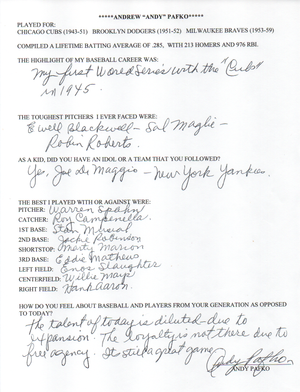 *****ANDREW "ANDY" PAFKO*****
PLAYED FOR:
CHICAGO CUBS (1943-51) BROOKLYN DODGERS (1951-52) MILWAUKEE BRAVES (1953-59)
COMPILED A LIFETIME BATTING AVERAGE OF .285, WITH 213 HOMERS AND 976 RBI.
THE HIGHLIGHT OF MY BASEBALL CAREER WAS:
My first World Series with the "Cubs"
in 1945.
THE TOUGHEST PITCHERS I EVER FACED WERE:
Ewell Blackwell - Sal Maglie -
Robin Roberts.
AS A KID, DID YOU HAVE AN IDOL OR A TEAM THAT YOU FOLLOWED?
Yes, Joe Di Maggio - New York Yankees.
THE BEST I PLAYED WITH OR AGAINST WERE:
PITCHER: Warren Spahn
CATCHER: Roy Campenella.
1ST BASE: Stan Musial
2ND BASE: Jackie Robinson
SHORTSTOP: Marty Marion
3RD BASE: Eddie Mathews
LEFT FIELD: Enos Slaughter
CENTERFIELD: Willie Mays
RIGHT FIELD: Hank Aaron.
HOW DO YOU FEEL ABOUT BASEBALL AND PLAYERS FROM YOUR GENERATION AS OPPOSED
TO TODAY?
The talent of today is diluted - due to
expansion. The loyalty is not there due to
free agency. It still a great game.
Andy Pafko
ANDY PAFKO